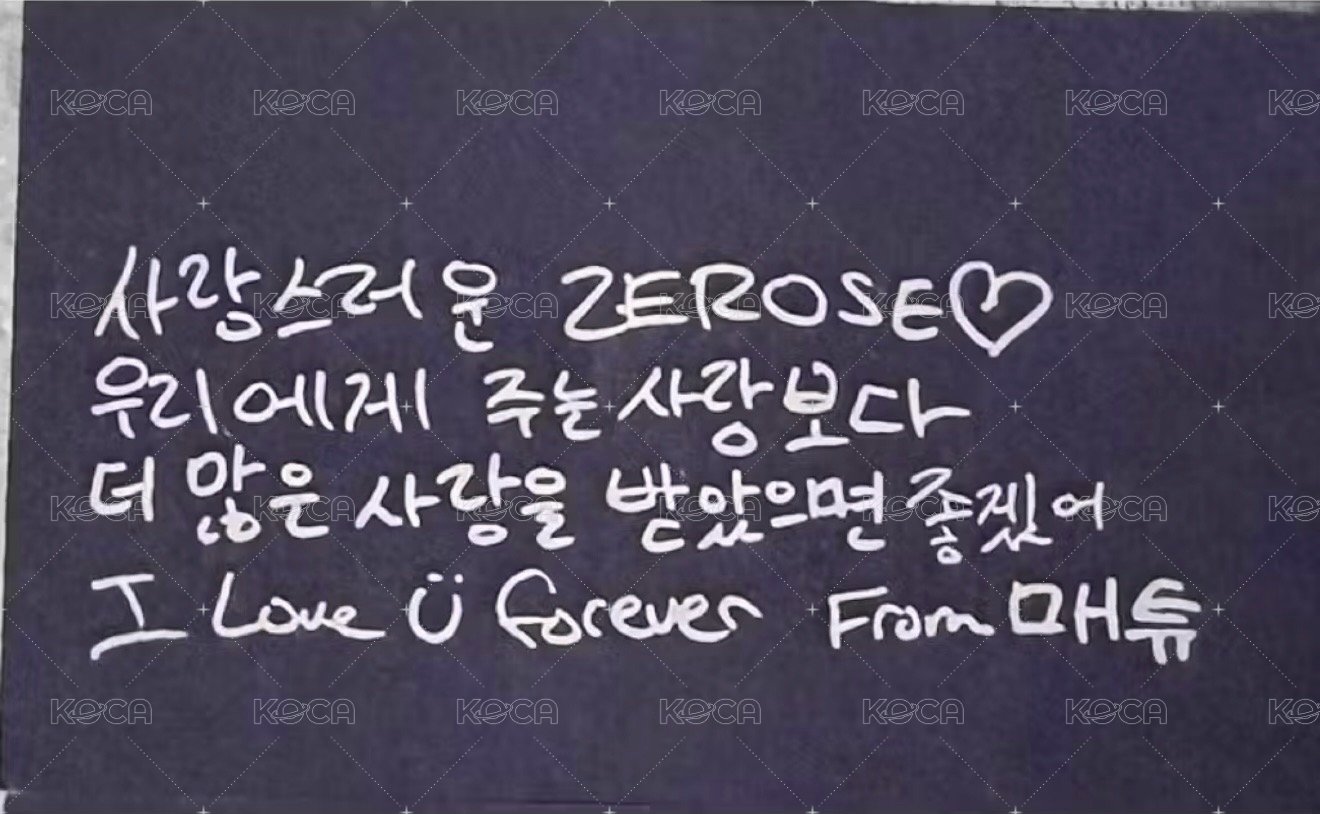 사랑스러운 ZEROSE♡
우리에게 주는 사랑보다
더 많은 사랑을 받았으면 좋겠어
I Love Ü forever From 매튜
KOCA KOCA KOCA KOCA KOCA KOCA